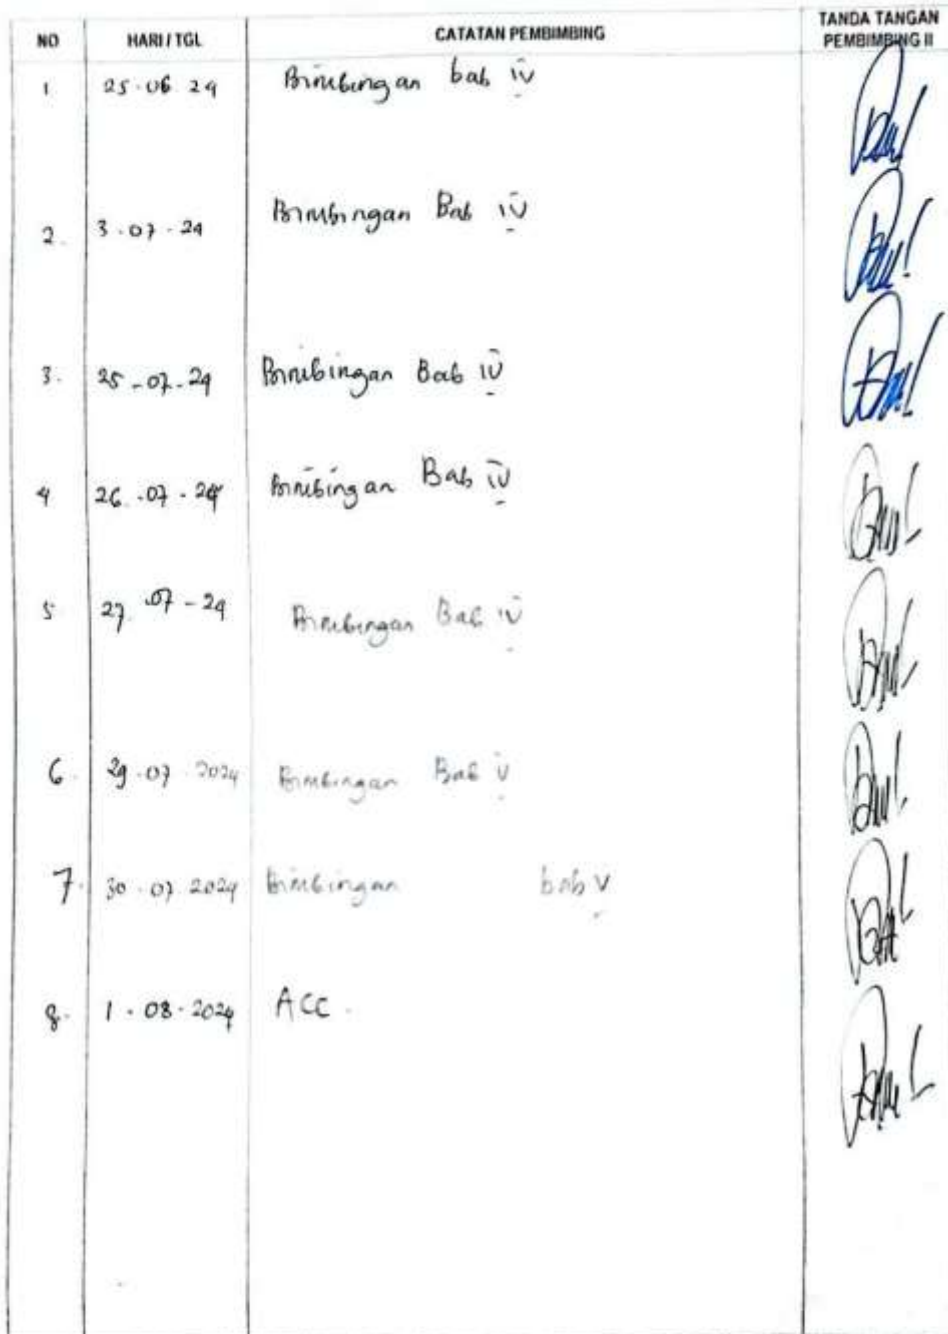 NO HARI / TGL CATATAN PEMBIMBING TANDA TANGAN PEMBIMBING II
1 25-06 24 Bimbingan bab iv
2. 3-07-24 Bimbingan Bab iv
3. 25-07-24 Bimbingan Bab iv
4 26-07-24 Bimbingan Bab iv
5 27-07-24 Bimbingan Bab iv
6. 29-07-2024 Bimbingan Bab v
7. 30-07 2024 Bimbingan bab v
8. 1-08-2024 ACC.